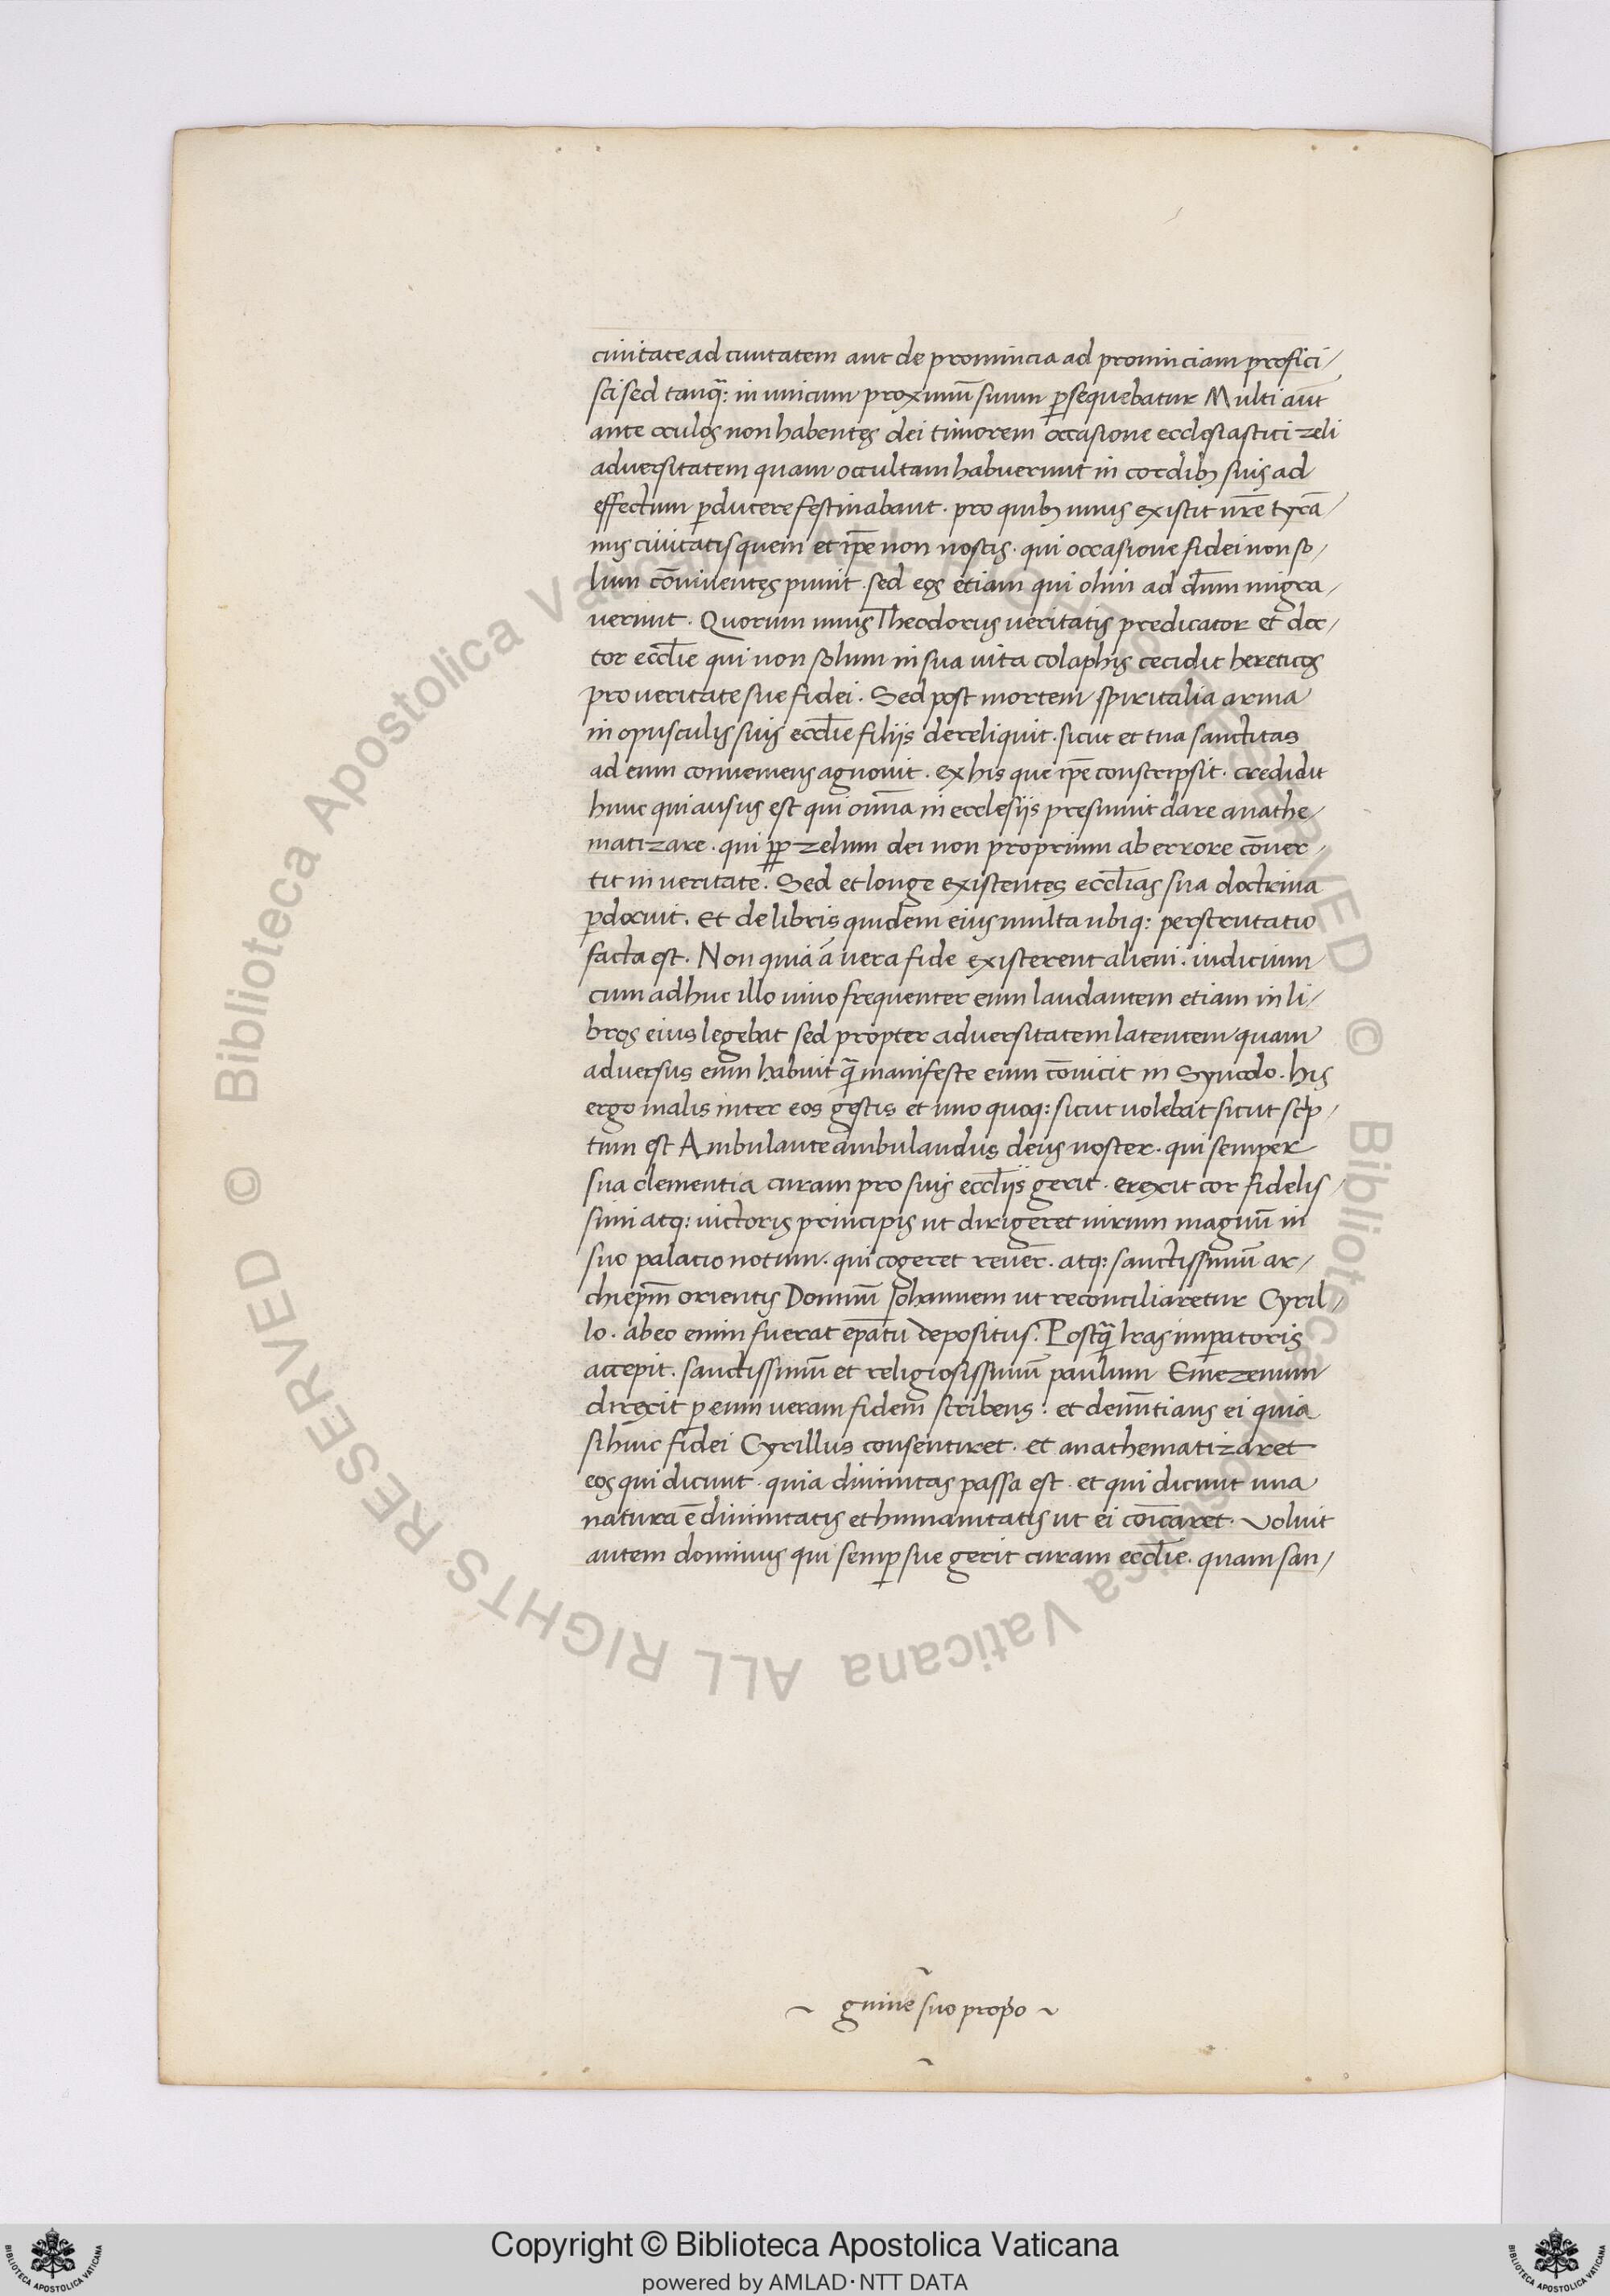 ciuitate ad ciuitatem aut de prouincia ad prouinciam profici/
sci sed tanq̃: in unicum proximũ suum p̱sequebatur Multi aũt
ante oculos non habentes dei timorem occasione ecclesiastici zeli
aduersitatem quam occultam habuerunt in cordibꝫ suis ad
effectum ꝑducere festinabant · pro quibꝫ unus existit nr̃e tyrã/
nus ciuitatis quem et ip̃e non nostis · qui occasione fidei non so/
lum cõuiuentes punit · sed eos etiam qui olim ad dñm migra/
uerunt · Quorum unus Theodorus ueritatis predicator et doc/
tor eccl̃ie qui non solum in sua uita colaphis cecidit hereticos
pro ueritate sue fidei · Sed post mortem spiritalia arma
in opusculis suis eccl̃ie filiis dereliquit · sicut et tua sanctitas
ad eum conueniens agnouit · ex his que ip̃e conscripsit · credidit
hunc qui ausus est qui om̃ia in ecclesiis presumit dare anathe/
matizare · qui ꝓp zelum dei non proprium ab errore cõuer/
tit in ueritatẽ · Sed et longe existentes eccl̃ias sua doctrina
ꝑdocuit · Et de libris quidem eius multa ubiq: perscrutatio
facta est · Non quia ã uera fide existerent alieni · iudicium
cum adhuc illo uiuo frequenter eum laudantem etiam in li/
bros eius legebat sed propter aduersitatem latentem quam
aduersus eum habuit q̃ manifeste eum cõuicit in Synodo · his
ergo malis inter eos gestis et uno quoq: sicut uolebat sicut scͥp/
tum est Ambulante ambulandus deus noster · qui semper
sua clementia curam pro suis eccl̃iis gerit · erexit cor fidelis/
simi atq: uictoris principis ut dirigeret uirum magnũ in
suo palatio notum · qui cogeret reuer̃ · atq: sanctissimũ ar/
chiep̃m orientis Dominũ Johannem ut reconciliaretur Cyril/
lo · ab eo enim fuerat ep̃atu depositus · Postq̃ lr̃as imꝑatoris
accepit · sanctissimũ et religiosissimũ paulum Emezenum
direxit ꝑ eum ueram fidem scribens : et denũtians ei quia
si huic fidei Cyrillus consentiret · et anathematizaret
eos qui dicunt · quia diuinitas passa est · et qui dicunt una
natura ẽ diuinitatis et humanitatis ut ei cõicaret · Voluit
autem dominus qui semꝑ sue gerit curam eccl̃ie · quam san/
~ guinẽ suo propͥo ~
Copyright © Biblioteca Apostolica Vaticana
powered by AMLAD·NTT DATA
© Biblioteca Apostolica Vaticana ALL RIGHTS RESERVED
© Biblioteca Apostolica Vaticana ALL RIGHTS RESERVED
BIBLIOTECA APOSTOLICA VATICANA
BIBLIOTECA APOSTOLICA VATICANA